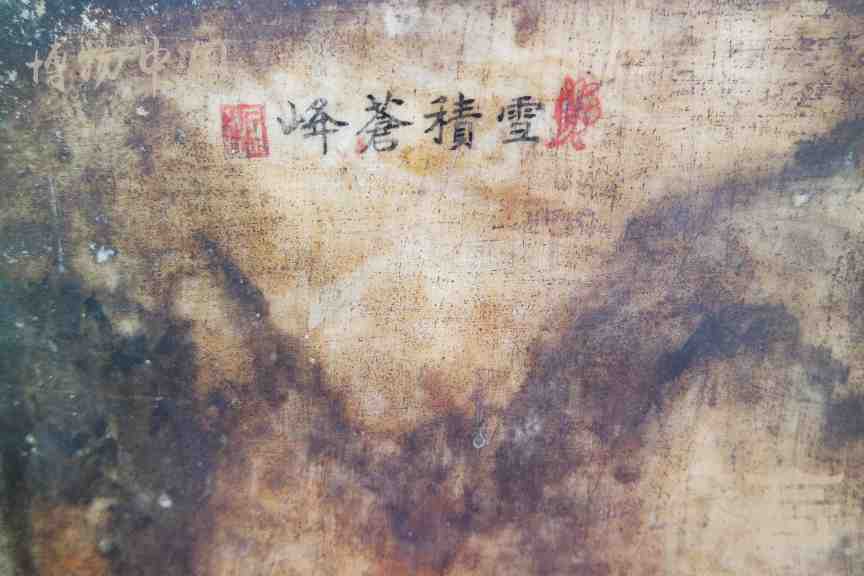 博物中国
雪積蒼峰